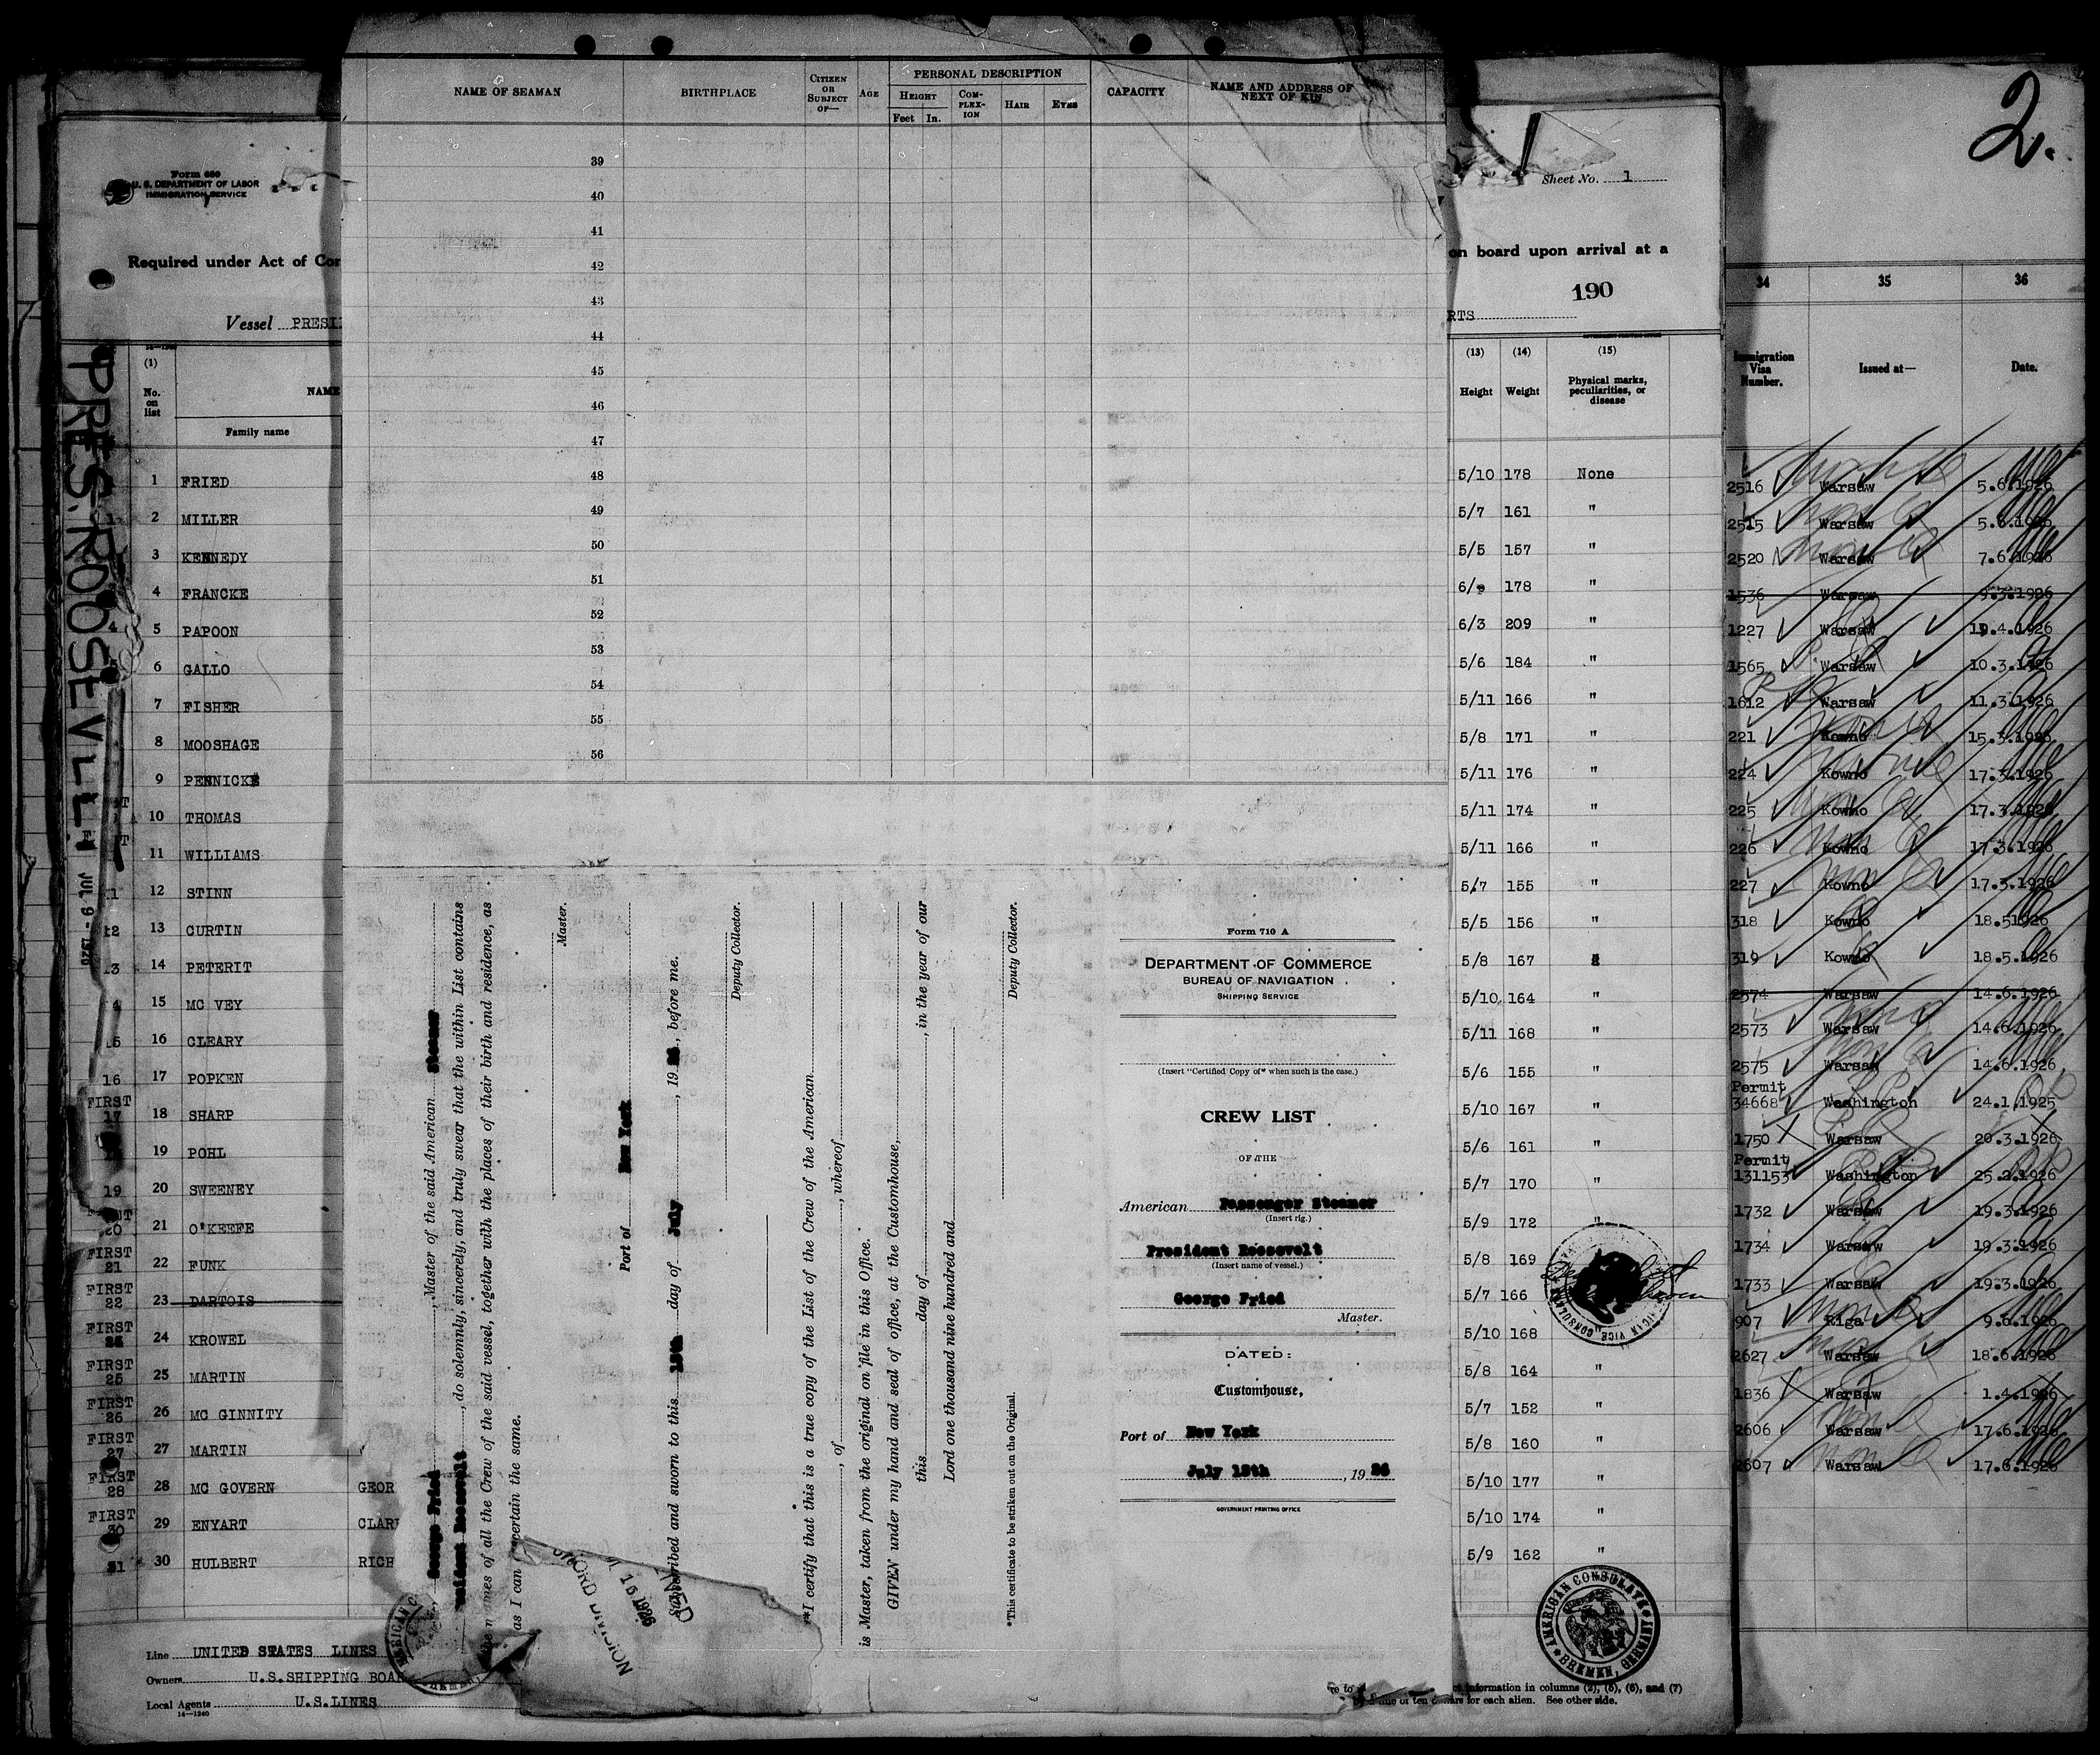 2.
NAME OF SEAMAN
BIRTHPLACE
CITIZEN OR SUBJECT OF—
AGE
PERSONAL DESCRIPTION
HEIGHT
Feet In.
COM-PLEX-ION
HAIR
EYES
CAPACITY
NAME AND ADDRESS OF NEXT OF KIN
39
40
41
42
43
44
45
46
47
48
49
50
51
52
53
54
55
56
Form 680
U. S. DEPARTMENT OF LABOR
IMMIGRATION SERVICE
Required under Act of Con
Vessel PRESI
PRES. ROOSEVLLT
JUL 9 - 1926
(1)
No. on list
NAME
Family name
1 FRIED
2 MILLER
3 KENNEDY
4 FRANCKE
5 PAPOON
6 GALLO
7 FISHER
8 MOOSHAGE
9 PENNICKE
10 THOMAS
11 WILLIAMS
12 STINN
13 CURTIN
14 PETERIT
15 MC VEY
16 CLEARY
16 17 POPKEN
FIRST
17 18 SHARP
19 POHL
19 20 SWEENEY
20 21 O'KEEFE
FIRST
21 22 FUNK
FIRST
22 23 DARTOIS
FIRST
24 KROWEL
FIRST
25 25 MARTIN
FIRST
26 26 MC GINNITY
FIRST
27 27 MARTIN
FIRST
28 28 MC GOVERN GEOR
FIRST
30 29 ENYART CLAR
31 30 HULBERT RICH
Line UNITED STATES LINES
Owners U.S.SHIPPING BOA
Local Agents U.S.LINES
14—1240
George Fried, Master of the said American Steamer
sident Roosevelt, do solemnly, sincerely, and truly swear that the within List contains
the names of all the Crew of the said vessel, together with the places of their birth and residence, as
as I can ascertain the same.
Master.
Port of New York
Subscribed and sworn to this 13th day of July, 19 26, before me.
Deputy Collector.
*I certify that this is a true copy of the List of the Crew of the American
, of , whereof
is Master, taken from the original on file in this Office.
GIVEN under my hand and seal of office, at the Customhouse,
this day of , in the year of our
Lord one thousand nine hundred and
Deputy Collector.
*This certificate to be striken out on the Original.
Form 710 A
DEPARTMENT OF COMMERCE
BUREAU OF NAVIGATION
SHIPPING SERVICE
(Insert "Certified Copy of" when such is the case.)
CREW LIST
OF THE
American Passenger Steamer
(Insert rig.)
President Roosevelt
(Insert name of vessel.)
George Fried
Master.
DATED:
Customhouse,
Port of New York
July 13th, 19 26
GOVERNMENT PRINTING OFFICE
Sheet No. 1
on board upon arrival at a
190
RTS
(13) (14) (15)
Height Weight Physical marks, peculiarities, or disease
5/10 178 None
5/7 161 "
5/5 157 "
6/ 178 "
6/3 209 "
5/6 184 "
5/11 166 "
5/8 171 "
5/11 176 "
5/11 174 "
5/11 166 "
5/7 155 "
5/5 156 "
5/8 167
5/10 164 "
5/11 168 "
5/6 155 "
5/10 167 "
5/6 161 "
5/7 170 "
5/9 172 "
5/8 169
5/7 166
5/10 168
5/8 164 "
5/7 152 "
5/8 160 "
5/10 177 "
5/10 174 "
5/9 162 "
AMERICAN CONSULATE
BREMEN, GERMANY
information in columns (2), (5), (6), and (7)
fine of ten dollars for each alien. See other side.
34 35 36
Immigration Visa Number. Issued at— Date.
2516 Warsaw 5.6.1926
2515 Warsaw 5.6.1926
2520 Warsaw 7.6.1926
1536 Warsaw 9.3.1926
1227 Warsaw 19.4.1926
1565 Warsaw 10.3.1926
1612 Warsaw 11.3.1926
221 Kowno 15.3.1926
224 Kowno 17.3.1926
225 Kowno 17.3.1926
226 Kowno 17.3.1926
227 Kowno 17.3.1926
318 Kowno 18.51926
319 Kowno 18.5.1926
2574 Warsaw 14.6.1926
2573 Warsaw 14.6.1926
2575 Warsaw 14.6.1926
Permit
34668 Washington 24.1.1925
1750 Warsaw 20.3.1926
Permit
131153 Washington 25.2.1926
1732 Warsaw 19.3.1926
1734 Warsaw 19.3.1926
1733 Warsaw 19.3.1926
907 Riga 9.6.1926
2627 Warsaw 18.6.1926
1836 Warsaw 1.4.1926
2606 Warsaw 17.6.1926
2607 Warsaw 17.6.1926